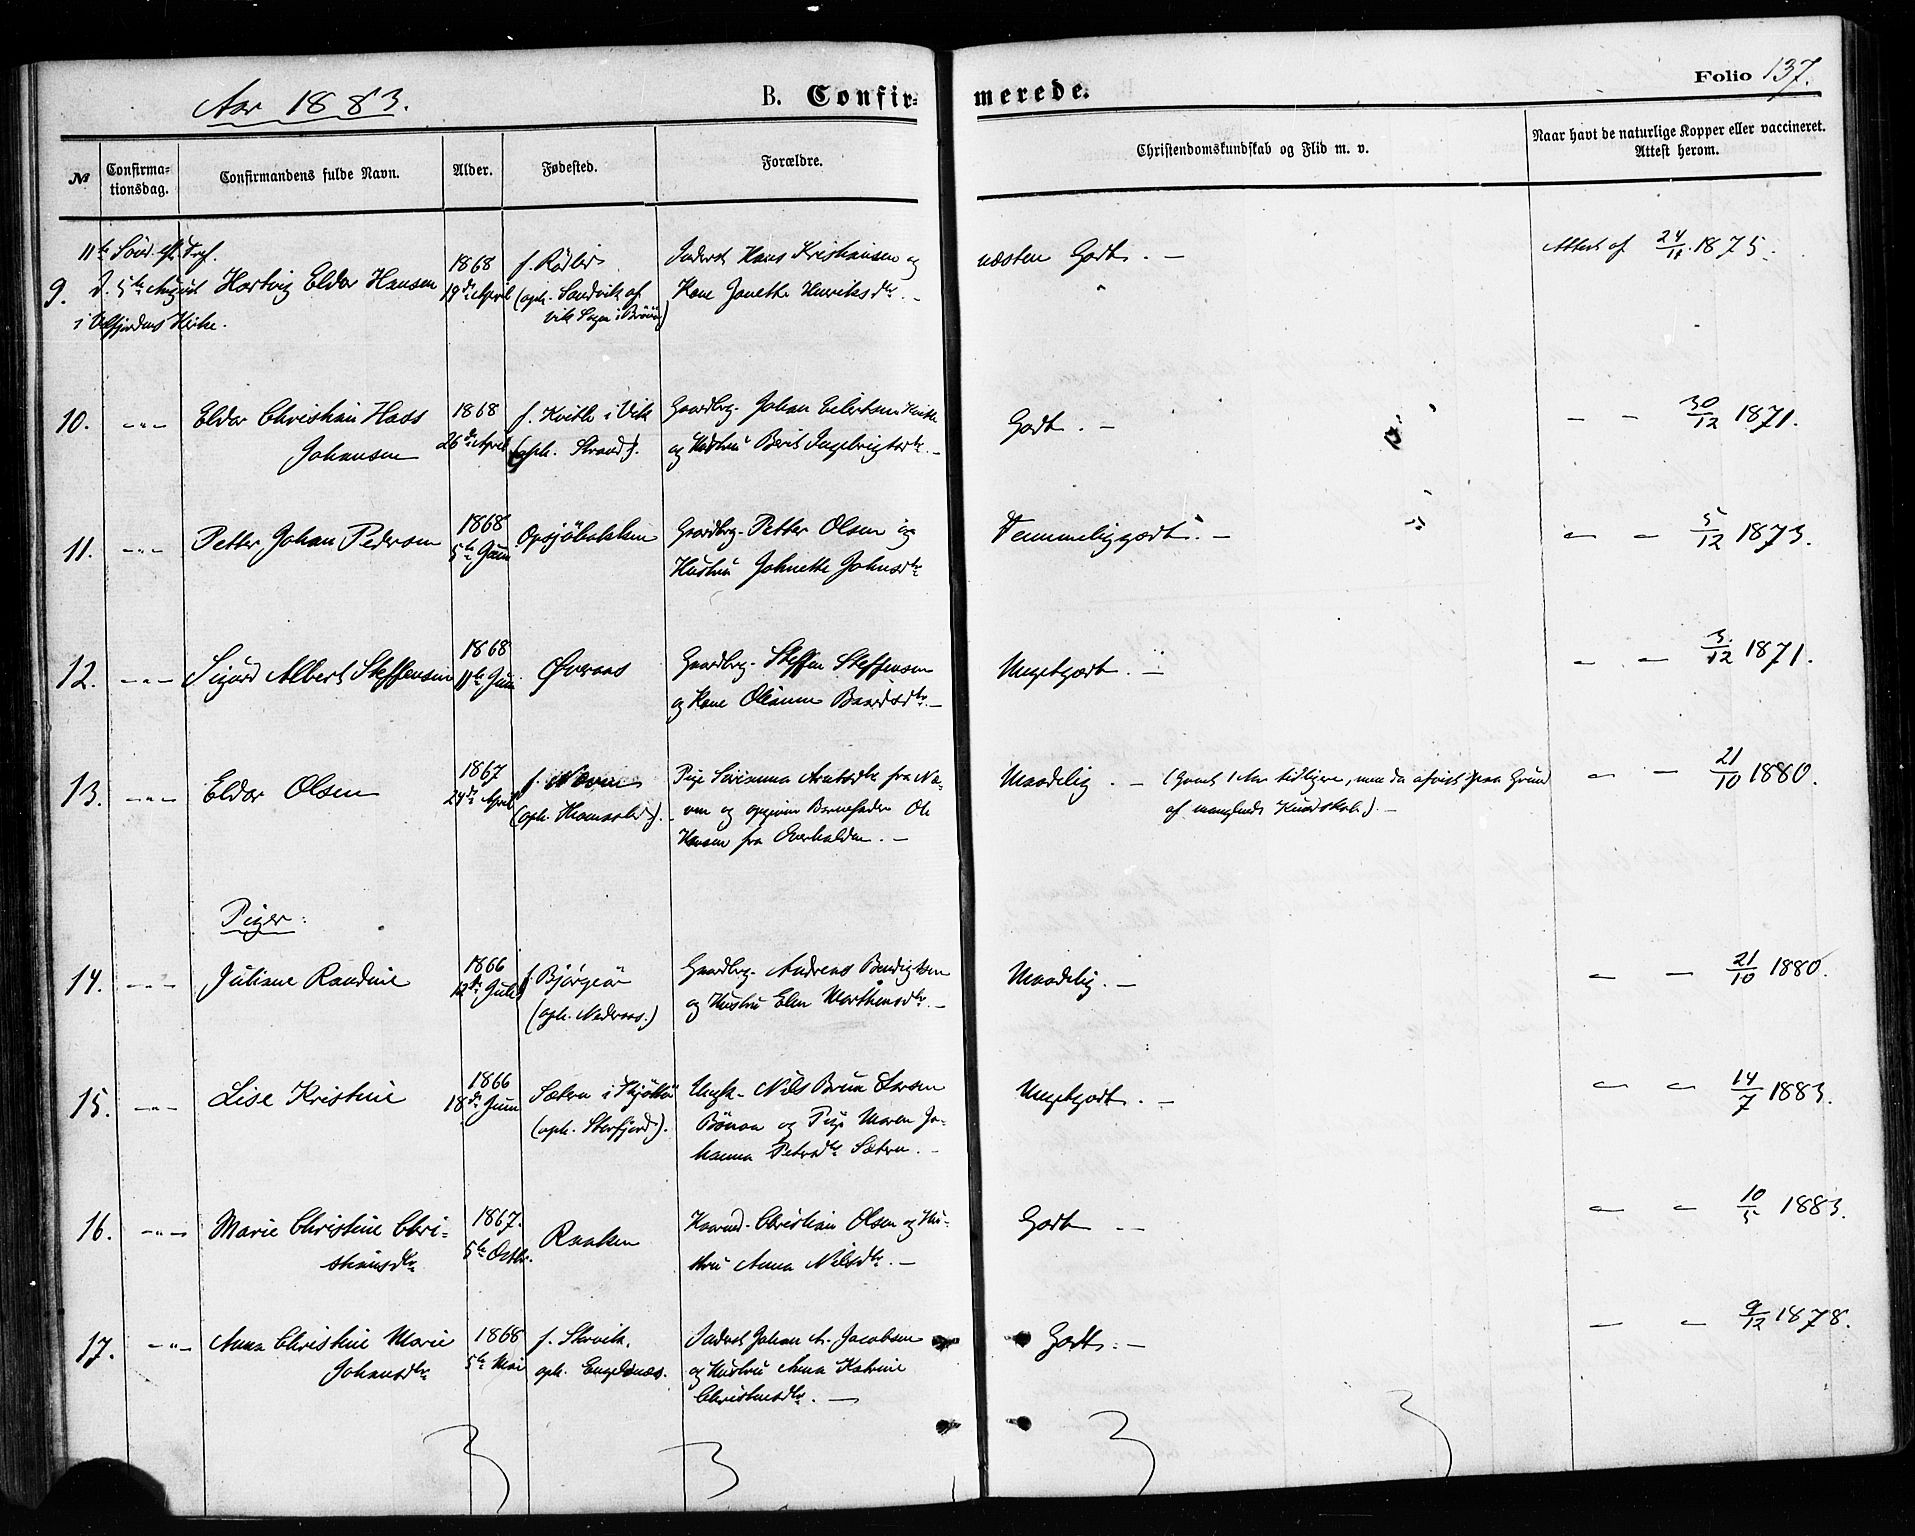 Aar 1883.
B. Confir-
merede.
Folio 137.
№
Confirma-
tionsdag.
Confirmandens fulde Navn.
Alder.
Fødested.
Forældre.
Christendomskundskab og Flid m. v.
Naar havt de naturlige Kopper eller vaccineret.
Attest herom.
11te Sønd. eft. Tref.
9. d. 5te August Hartvig Eldor Hansen
i Velfjordens Kirke.
1868
19de April
f. Rødli
(oph. Sandvik af
Vik Sogn i Brönö)
Inderst Hans Kristiansen og
Kone Janetta Henriksdtr. -
næsten Godt. -
Attest af 24/11 1875.
10. -"- Eldor Christian Haos
Johansen
1868
26de April
f. Kvitle i Vik
(oph. Strand).
Gaardbrg. Johan Eilertsen Kvitle
og Hustru Berit Ingebrigtsdtr. -
Godt. -
- - 30/12 1871.
11. -"- Petter Johan Pedersen
1868
5te Juni
Opsjöbakken
Gaardbrg. Petter Olsen og
Hustru Johnetta Johnsdtr
Temmeliggodt. -
- - 5/12 1873.
12. -"- Sigurd Albert Steffensen
1868
11te Juni
Øveraas
Gaardbrg. Steffen Steffensen
og Kone Olianna Baardsdtr. -
Megetgodt. -
- - 3/12 1871.
13. -"- Eldor Olsen
1867
24de April
f. Naven
(oph. Hommeslid).
Pige Serianna Arntsdtr fra Na-
ven og opgiven Barnefader Ole
Hansen fra Overhalden. -
Maadelig. - (Gaaet 1 Aar tidligere, men da afvist paa Grund
af manglende Kundskab.) -
- - 21/10 1880.
Piger:
14. -"- Juliane Randine
1866
12te Juli
f. Bjørgeør
(oph. Nederaas.)
Gaardbrg. Andreas Bendigtsen
og Hustru Elen Marthinsdtr. -
Maadelig. -
- - 21/10 1880.
15. -"- Lise Kristine
1866
18de Juni
Sætren i Tjøtta
(oph. Storfjord).
Ungk. Nils Brun Larsen
Bönaa og Pige Maren Jo-
hanna Petersdtr Sætren. -
Megetgodt. -
- - 14/7 1883.
16. -"- Marie Christine Chri-
stiansdtr
1867.
5te Octbr.
Raaken
Huusmd. Christian Olsen og Hu-
stru Anna Nilsdtr. -
Godt -
- - 10/5 1883.
17. -"- Anna Christine Marie
Johansdtr
1868
5te Mai
f. Storvik.
oph. Engelsnæs.
Inderst Johan A. Jacobsen
og Hustru Anna Katrine
Christensdtr. -
Godt. -
- - 9/12 1878.